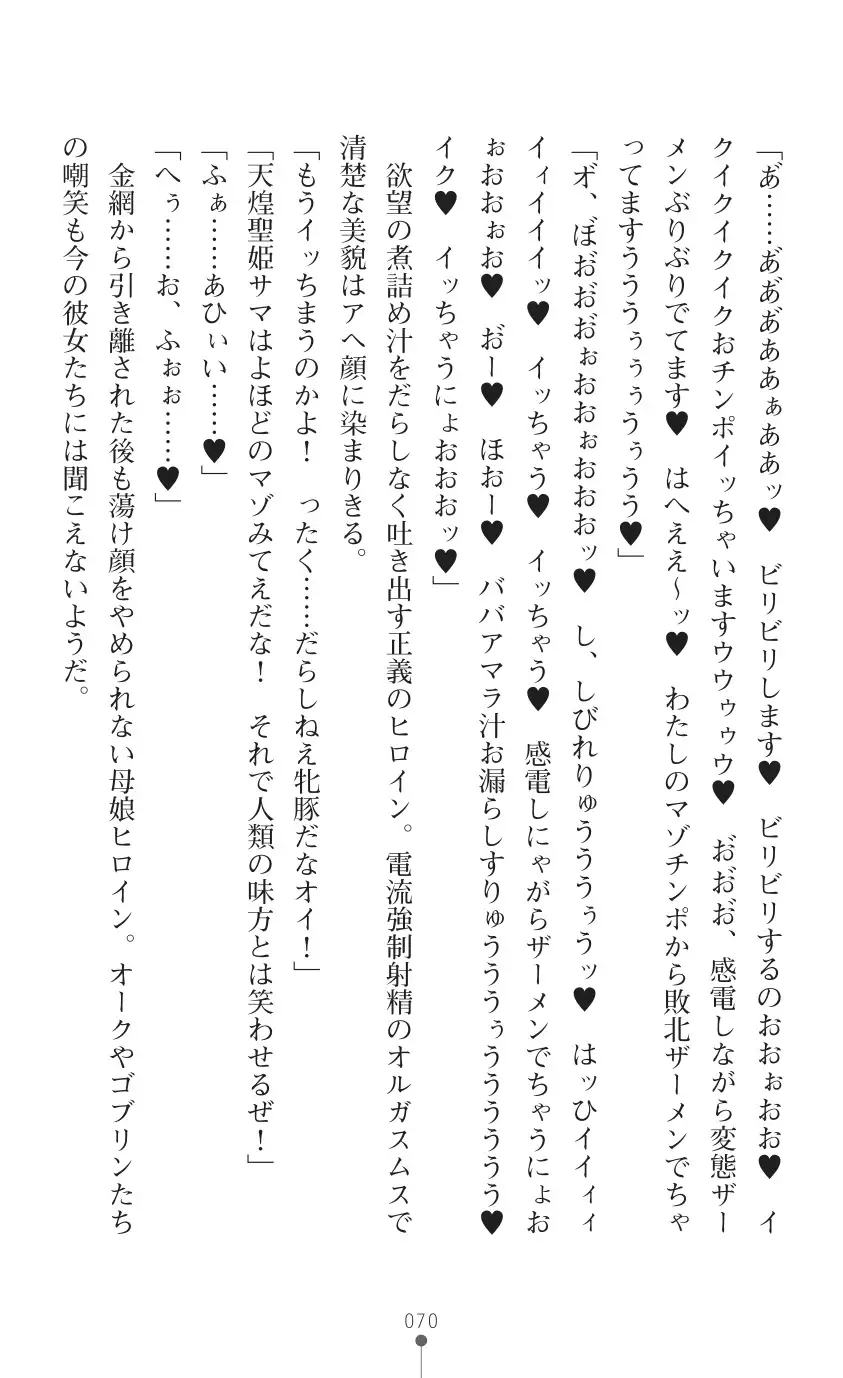 「あ゛……あ゛あ゛あ゛ああぁああッ♥　ビリビリします♥　ビリビリするのおおぉおお♥　イ
クイクイクイクおチンポイッちゃいますウウゥゥウ♥　お゛お゛お゛、感電しながら変態ザー
メンぶりぶりでてます♥　はへええ～ッ♥　わたしのマゾチンポから敗北ザーメンでちゃ
ってますうううぅぅぅうぅうう♥」
「オ゛、ぼお゛お゛お゛ぉおおぉおおおッ♥　し、しびれりゅうううぅうッ♥　はッひイイィィ
イィイイイッ♥　イッちゃう♥　イッちゃう♥　感電しにゃがらザーメンでちゃうにょお
ぉおおぉお♥　お゛ー♥　ほおー♥　ババアマラ汁お漏らしすりゅうううぅうううううう♥
イク♥　イッちゃうにょおおおッ♥」
欲望の煮詰め汁をだらしなく吐き出す正義のヒロイン。電流強制射精のオルガスムスで
清楚な美貌はアヘ顔に染まりきる。
「もうイッちまうのかよ！　ったく……だらしねえ牝豚だなオイ！」
「天煌聖姫サマはよほどのマゾみてえだな！　それで人類の味方とは笑わせるぜ！」
「ふぁ……あひぃい……♥」
「へぅ……お、ふぉぉ……♥」
金網から引き離された後も蕩け顔をやめられない母娘ヒロイン。オークやゴブリンたち
の嘲笑も今の彼女たちには聞こえないようだ。
070